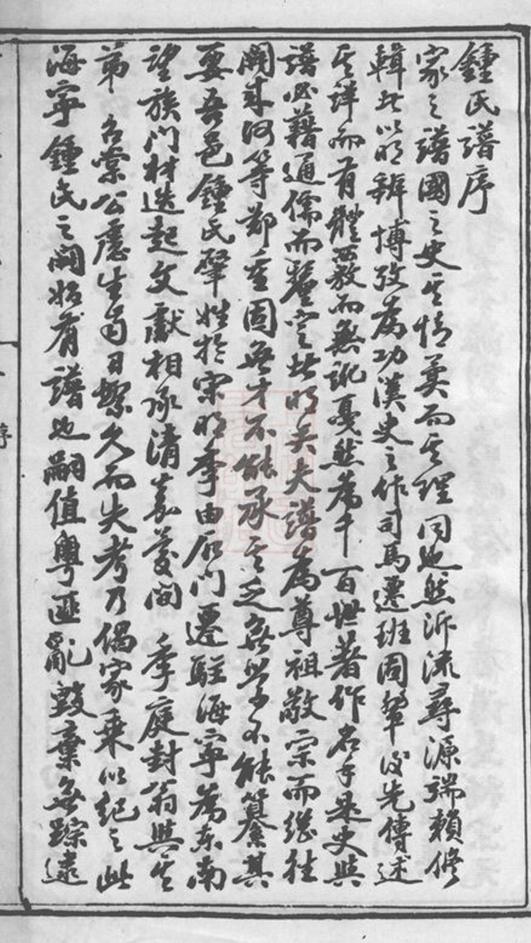 鍾氏譜序
家之譜國之史其情異而其理同也然泝流尋源端賴修
輯非以明辨博攷為功漢史之作司馬遷班固輩後先傳述
其詳而有體覈而無訛戛然為千百世著作名手是史與
譜必藉通儒而釐定皆明矣夫譜為尊祖敬宗而繼往
開來何等鄭重固無才不能承其乏無學不能纂其
要吾邑鍾氏肇姓於宋明季由石門遷駐海寧為東南
望族門材迭起文獻相承清嘉慶間 季庭封翁與其
弟 召棠公慮生勾日繁久而失考乃偶家乘以紀之此
海寧鍾氏之開始有譜也嗣值粵匪亂毀棄無踪逮